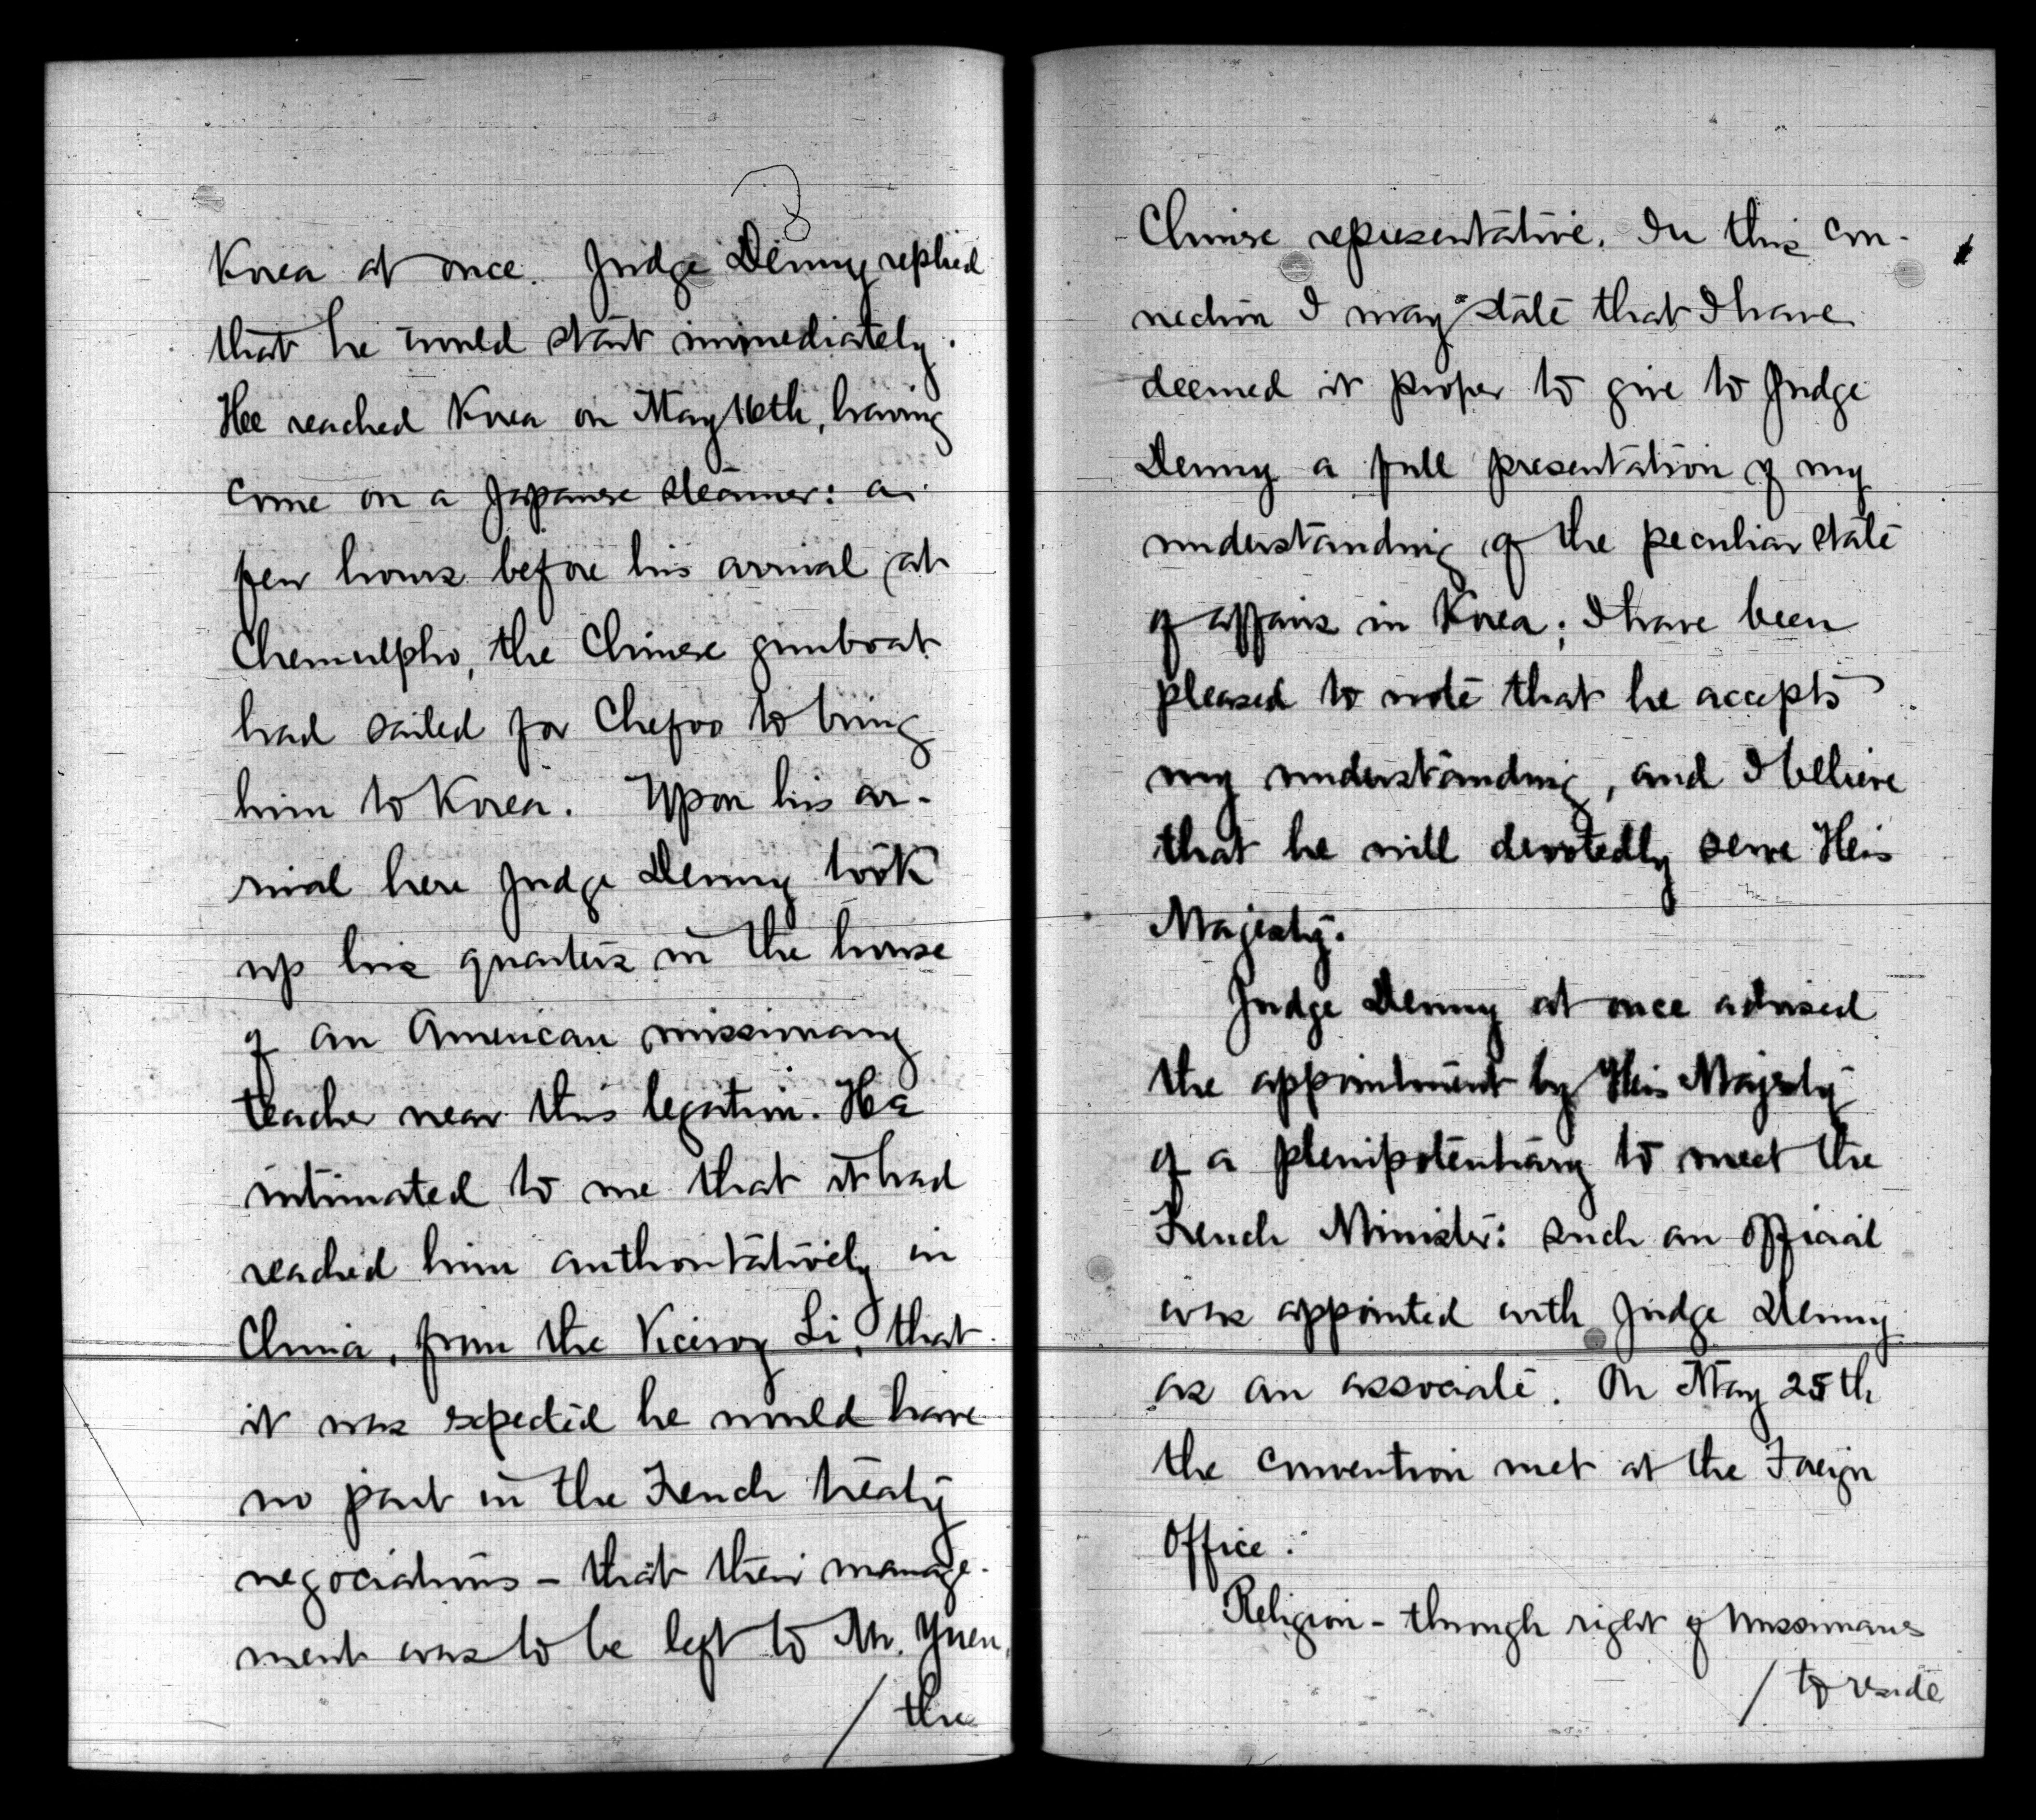 Korea at once. Judge Denny replied
that he would start immediately.
He reached Korea on May 16th, having
come on a Japanese steamer: a
few hours before his arrival at
Chemulpho, the Chinese gunboat
had sailed for Chefoo to bring
him to Korea. Upon his ar-
rival here Judge Denny took
up his quarters in the house
of an American missionary
teacher near this legation. He
intimated to me that it had
reached him authoritatively in
China, from the Viceroy Li, that
it was expected he would have
no part in the French treaty
negociations - that their manage-
ment was to be left to Mr. Yuen,
/ the
Chinese representative. In this con-
nection I may state that I have
deemed it proper to give to Judge
Denny a full presentation of my
understanding of the peculiar state
of affairs in Korea; I have been
pleased to note that he accepts
my understanding, and I believe
that he will devotedly serve His
Majesty.
Judge Denny at once advised
the appointment by His Majesty
of a plenipotentiary to meet the
French Minister: such an official
was appointed with Judge Denny
as an associate. On May 25th
the convention met at the Foreign
Office.
Religion - though right of missionaries
/ to reside